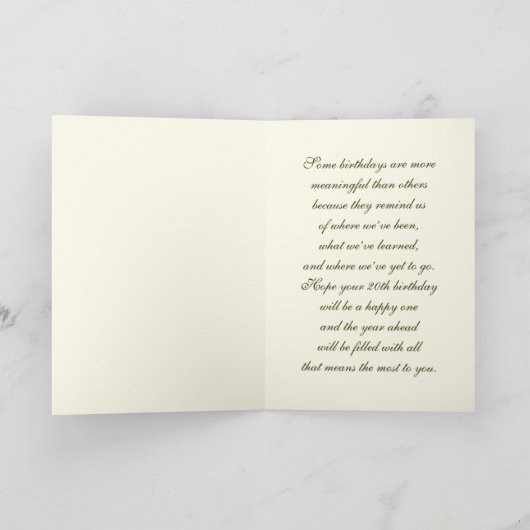 Some birthdays are more
meaningful than others
because they remind us
of where we've been,
what we've learned,
and where we've yet to go.
Hope your 20th birthday
will be a happy one
and the year ahead
will be filled with all
that means the most to you.